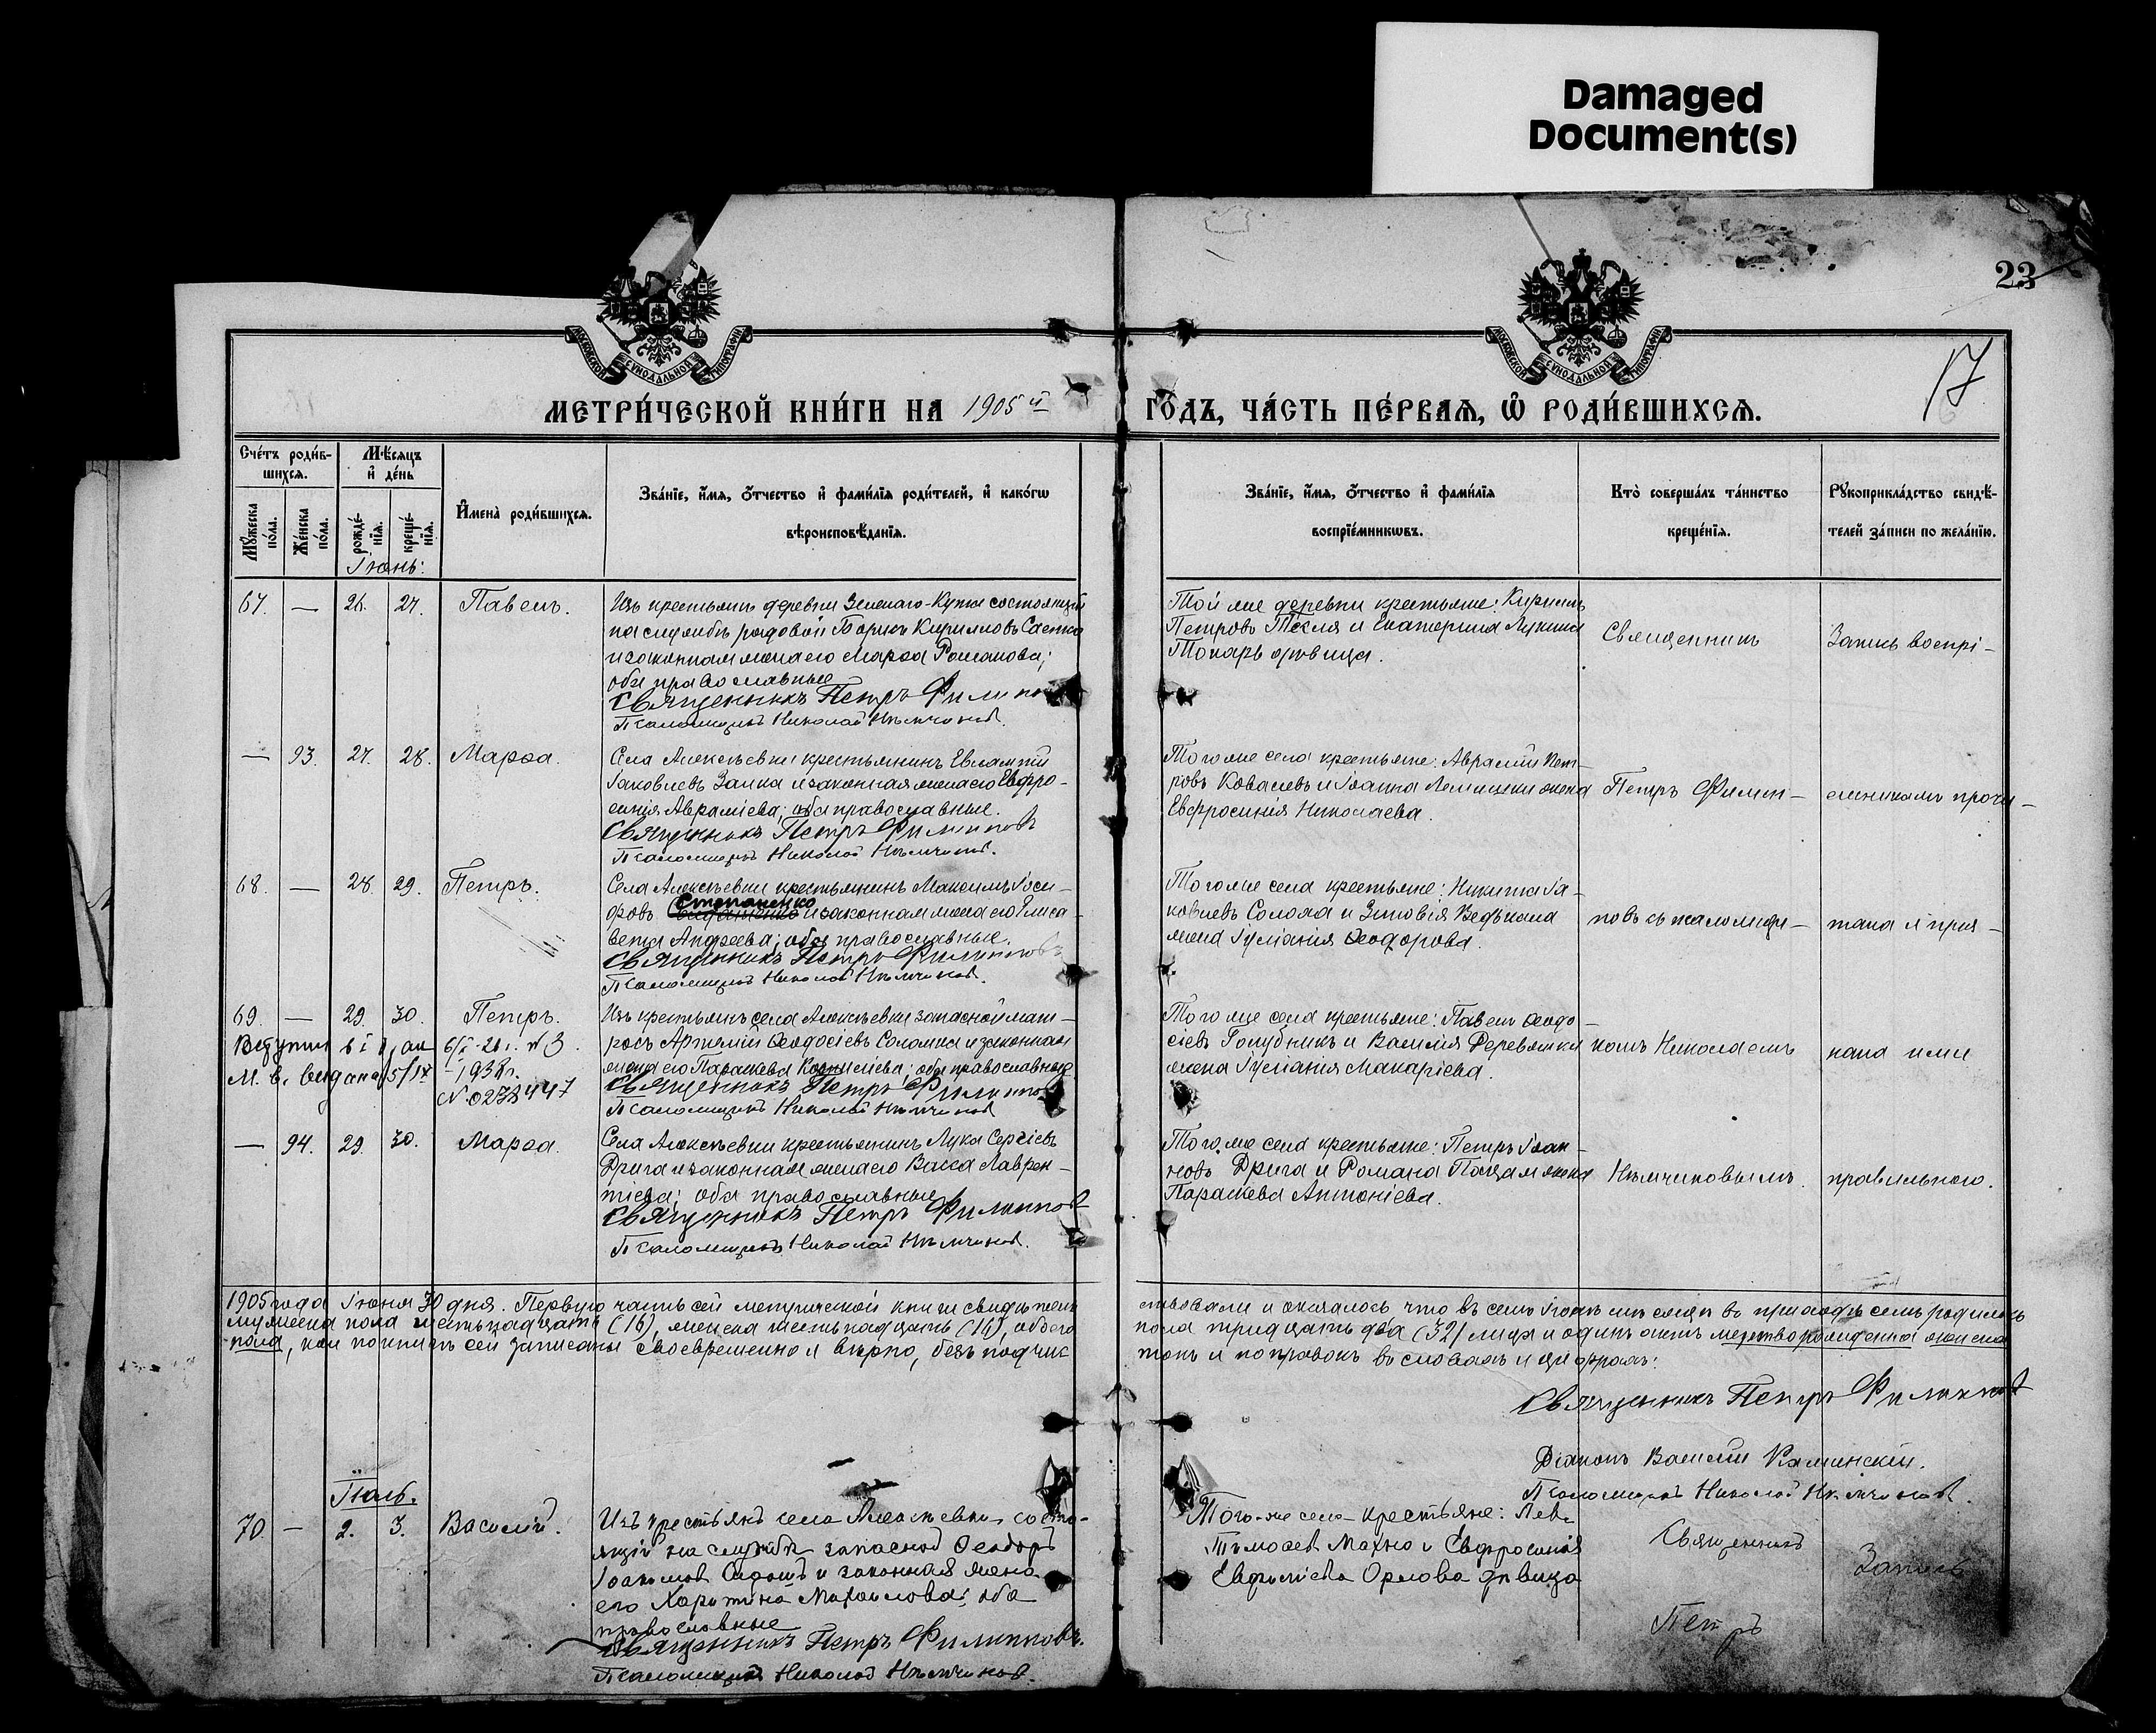 Damaged
Document(s)
23
17
МОСКОВСКОЙ СѴНОДАЛЬНОЙ ТИПОГРАФІИ
МОСКОВСКОЙ СѴНОДАЛЬНОЙ ТИПОГРАФІИ
МЕТРИ́ЧЕСКОЙ КНИ́ГИ НА 1905 й ГОДЪ, ЧА́СТЬ ПЕ́РВАЯ, Ѡ РОДИ́ВШИХСЯ.
Сче́тъ роди́в-
шихся.
Мѣ́сяцъ
и де́нь
Мꙋ́жеска по́ла.
Же́нска по́ла.
рожде́-
нїя.
креще́-
нїя.
Имена̀ роди́вшихся.
Зва́нїе, и́мя, о́тчество и фами́лїя роди́телей, и како́гѡ
вѣроисповѣ́данїя.
Зва́нїе, и́мя, о́тчество и фами́лїя
воспрїе́мникѡвъ.
Кто̀ соверша́лъ та́инство
креще́нїя.
Рꙋкоприкла́дство свидѣ́-
телей за́писи по жела́нїю.
Іюнь:
67. — 26. 27. Павелъ.
Изъ крестьянъ деревни Зеленаго-Кута состоящій
на службѣ рядовой Борисъ Кирилловъ
и законная жена его Марѳа Романова;
оба православные
Священникъ Петръ Филипповъ
Псаломщикъ Николай Нѣмчиновъ.
Той же деревни крестьяне: Кириллъ
Петровъ и Екатерина Лукина
Токарь дѣвица.
Священникъ
Запись воспрі-
— 93. 27. 28. Марѳа.
Села Алексѣевки крестьянинъ Евлампій
Іаковлевъ Заика и законная жена его Евфро-
синія Авраміева; оба православные.
Священникъ Петръ Филипповъ
Псаломщикъ Николай Нѣмчиновъ.
Того же села крестьяне: Аврамій Пет-
ровъ Ковалевъ и Іоанна жена
Евфросинія Николаева.
Петръ Филип-
емникамъ прочи-
68. — 28. 29. Петръ.
Села Алексѣевки крестьянинъ Максимъ Іоси-
фовъ Степаненко и законная жена его Елиса-
вета Андреева; оба православные.
Священникъ Петръ Филипповъ
Псаломщикъ Николай Нѣмчиновъ.
Того же села крестьяне: Никита Іа-
ковлевъ Солоха и Зиновія
жена Іуліанія Ѳеодорова.
повъ съ псаломщи-
тана и приз-
69. — 29. 30. Петръ.
Изъ крестьянъ села Алексѣевки запасной мат-
росъ Артемій Ѳеодосіевъ Соломка и законная
жена его Параскева Корниліева; оба православные
Священникъ Петръ Филипповъ
Псаломщикъ Николай Нѣмчиновъ
1938 г.
№ 0238447
Того же села крестьяне: Павелъ Ѳеодо-
сіевъ Голубникъ и Василія Деревянки
жена Іуліанія Макаріева.
комъ Николаемъ
нана ими
— 94. 29. 30. Марѳа.
Села Алексѣевки крестьянинъ Лука Сергіевъ
Дрига и законная жена его Васса Лаврен-
тіева; оба православные
Священникъ Петръ Филипповъ
Псаломщикъ Николай Нѣмчиновъ.
Того же села крестьяне: Петръ Іоан-
новъ Дрига и Романа жена
Параскева Антоніева.
Нѣмчиновымъ.
правильною.
1905 года Іюня 30 дня. Первую часть сей метрической книги свидѣтель-
ствовали и оказалось что въ семъ Іюнѣ мѣсяцѣ въ приходѣ семъ родилось
мужеска пола шестьнадцать (16), женска шестьнадцать (16), обоего
пола тридцать два (32) лица и одинъ актъ мертворожденія женска
пола, кои по книгѣ сей записаны своевременно и вѣрно, безъ подчис-
токъ и поправокъ въ словахъ и цифрахъ:
Священникъ Петръ Филипповъ
Діаконъ Василій Каминскій.
Псаломщикъ Николай Нѣмчиновъ.
Іюль.
70. — 2. 3. Василій.
Изъ крестьянъ села Алексѣевки, состо-
ящій на службѣ запасной Ѳеодоръ
Іоакимовъ и законная жена
его Харитина Михаилова; оба
православные
Священникъ Петръ Филипповъ.
Псаломщикъ Николай Нѣмчиновъ.
Того-же села крестьяне: Левъ
Тимоѳеевъ Махно и Евфросинія
Евфиміева Орлова дѣвица
Священникъ
Петръ
Запись